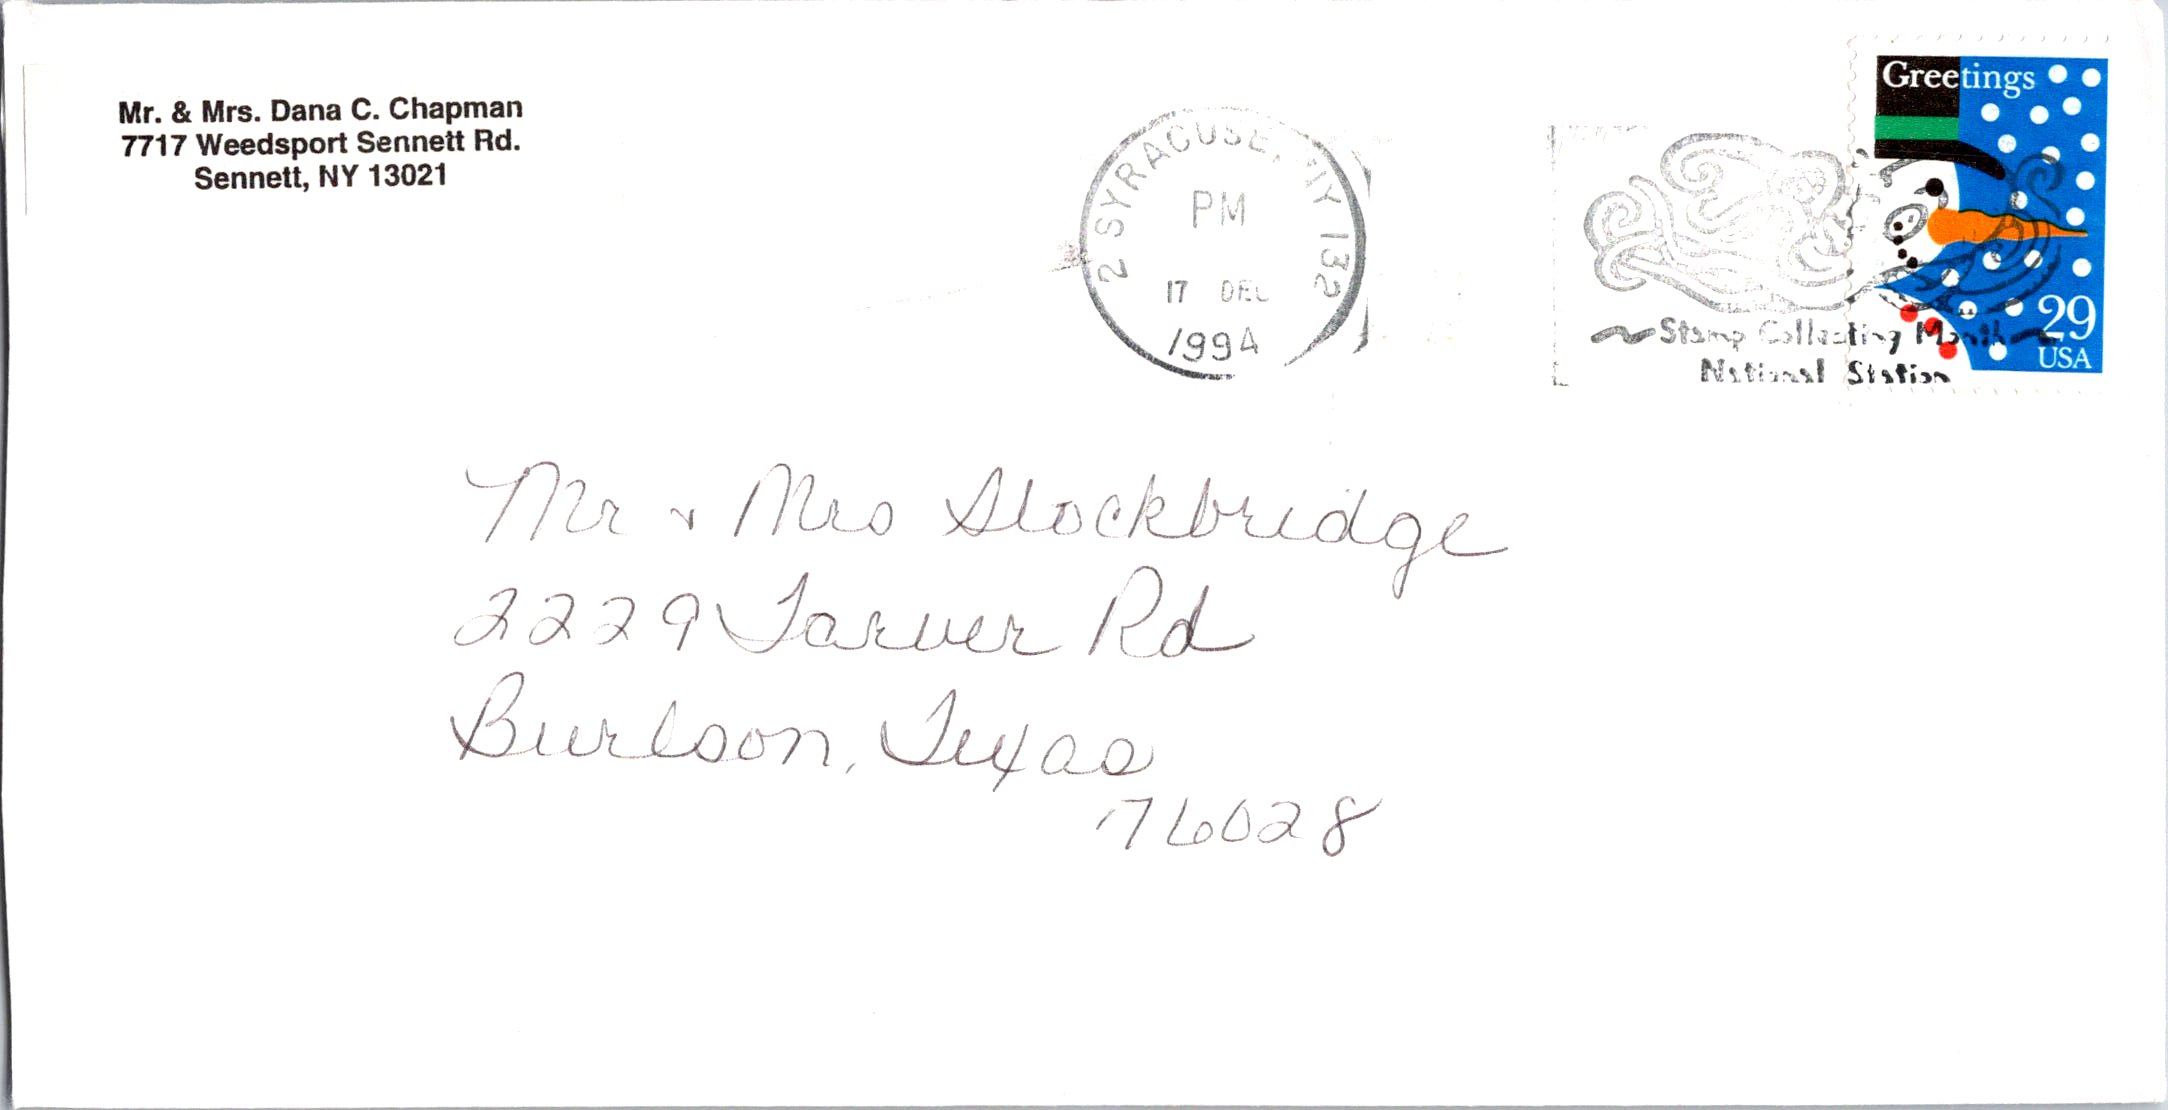 Mr. & Mrs. Dana C. Chapman
7717 Weedsport Sennett Rd.
Sennett, NY 13021
2 SYRACUSE, NY 132
PM
17 DEC
1994
Greetings
29
USA
Stamp Collecting Month
National Station
Mr & Mrs Stockbridge
2229 Tarver Rd
Burleson, Texas
76028